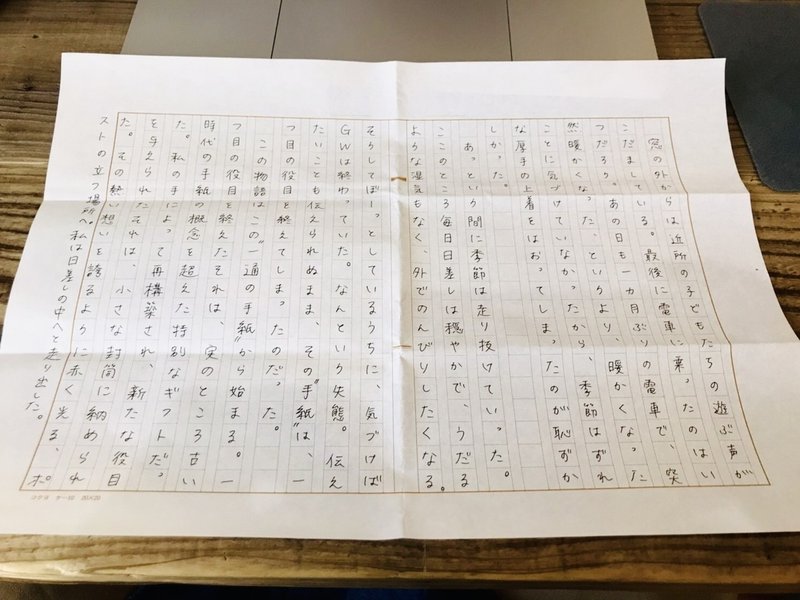 窓の外からは近所の子どもたちの遊ぶ声が
こだましている。最後に電車に乗ったのはい
つだろう。あの日も一カ月ぶりの電車で、突
然暖かくなった、というより、暖かくなった
ことに気づけていなかったから、季節はずれ
な厚手の上着をはおってしまったのが恥ずか
しかった。
あっという間に季節は走り抜けていった。
ここのところ毎日日差しは穏やかで、うだる
ような湿気もなく、外でのんびりしたくなる。
そうしてぼーっとしているうちに、気づけば
GWは終わっていた。なんという失態。伝え
たいことも伝えられぬまま、その“手紙”は、一
つ目の役目を終えてしまったのだった。
この物語はこの“一通の手紙”から始まる。一
つ目の役目を終えたそれは、実のところ古い
時代の手紙の概念を超えた特別なギフトだっ
た。私の手によって再構築され、新たな役目
を与えられたそれは、小さな封筒に納められ
た。その熱い想いを誇るように赤く光る、ポ
ストの立つ場所へ。私は日差しの中へと走り出した。
コクヨ ケ-10 20×20